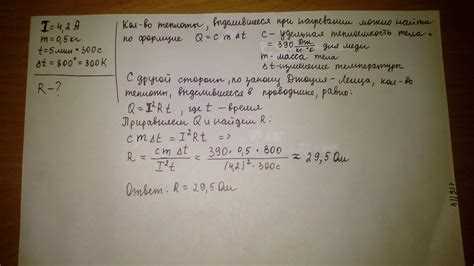 I = 4,2 А
m = 0,5 кг
t = 5 мин = 300 с
Δt = 300° = 300 К
R - ?
Кол-во теплоты, выделившиеся при нагревании можно найти
по формуле Q = c m Δt
с - удельная теплоемкость тела =
= 390 Дж/кг·°С для меди
m - масса тела
Δt - изменение температуры
С другой стороны, по закону Джоуля - Ленца, кол-во
теплоты, выделившиеся в проводнике, равно:
Q = I²Rt, где t - время
Приравняем Q и найдем R:
c m Δt = I²Rt =>
R = cmΔt / I²t = 390 · 0,5 · 300 / (4,2)² · 300с ≈ 29,5 Ом
Ответ: R = 29,5 Ом